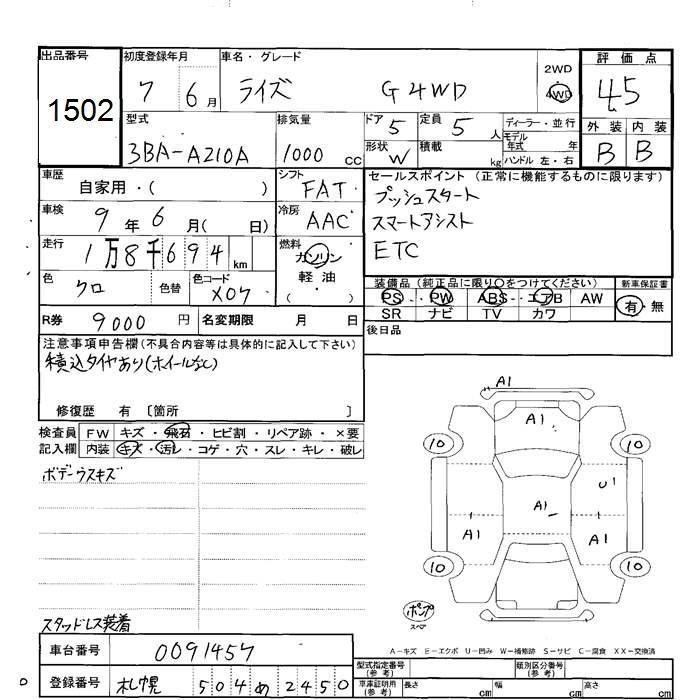 出品番号 初度登録年月 車名・グレード 2WD 4WD 評価点
1502 7 6月 ライズ G 4WD 4.5
型式 排気量 ドア 5 定員 5人 ディーラー・並行 外装 内装
3BA-A210A 1000cc 形状 W 積載 kg モデル年式 年 ハンドル 左・右 B B
車歴 自家用・( ) シフト FAT セールスポイント (正常に機能するものに限ります)
プッシュスタート
車検 9年6月( 日) 冷房 AAC スマートアシスト
走行 1万8千694km 燃料 ガソリン 軽・油 ( ) ETC
色 クロ 色替 色コード X07 装備品 (純正品に限り○をつけてください) 新車保証書
PS・PW・ABS・エアB AW 有・無
R券 9000円 名変期限 月 日 SR ナビ TV カワ
後日品
注意事項申告欄(不具合内容等は具体的に記入して下さい)
積込タイヤあり(ホイールなし)
修復歴 有 〔箇所 〕
検査員 FW キズ・飛石・ヒビ割・リペア跡・×要
記入欄 内装 キズ・汚レ・コゲ・穴・スレ・キレ・破レ
ボデーウスキズ
A1
A1
10 10
U1
A1
A1 A1
10 10
ポンプ
スペア
スタッドレス装着
A-キズ E-エクボ U-凹み W-補修跡 S-サビ C-腐食 XX-交換済
車台番号 0091457 型式指定番号(参考) 類別区分番号(参考)
登録番号 札幌 504 め 2450 車庫証明用(参考) 長さ cm 幅 cm 高さ cm